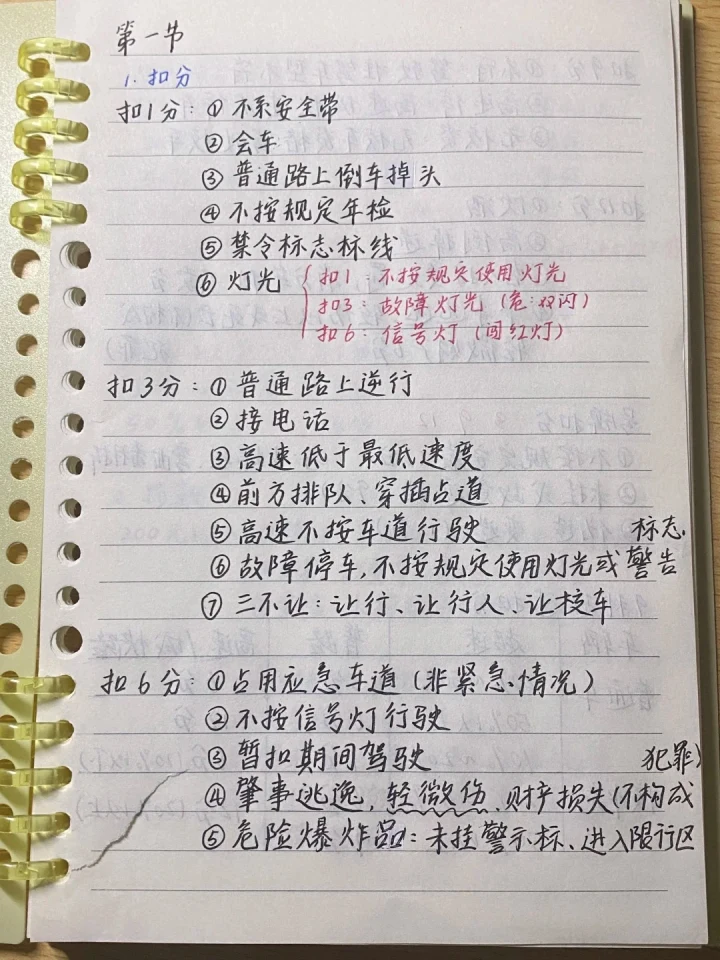 第一节
1. 扣分
扣1分：① 不系安全带
② 会车
③ 普通路上倒车掉头
④ 不按规定年检
⑤ 禁令标志标线
⑥ 灯光 { 扣1：不按规定使用灯光
扣3：故障灯光（危：双闪）
扣6：信号灯（闯红灯）
扣3分：① 普通路上逆行
② 接电话
③ 高速低于最低速度
④ 前方排队、穿插占道
⑤ 高速不按车道行驶
⑥ 故障停车，不按规定使用灯光或 警告标志
⑦ 三不让：让行、让行人、让校车
扣6分：① 占用应急车道（非紧急情况）
② 不按信号灯行驶
③ 暂扣期间驾驶
④ 肇事逃逸，轻微伤、财产损失（不构成犯罪）
⑤ 危险爆炸品：未挂警示标、进入限行区